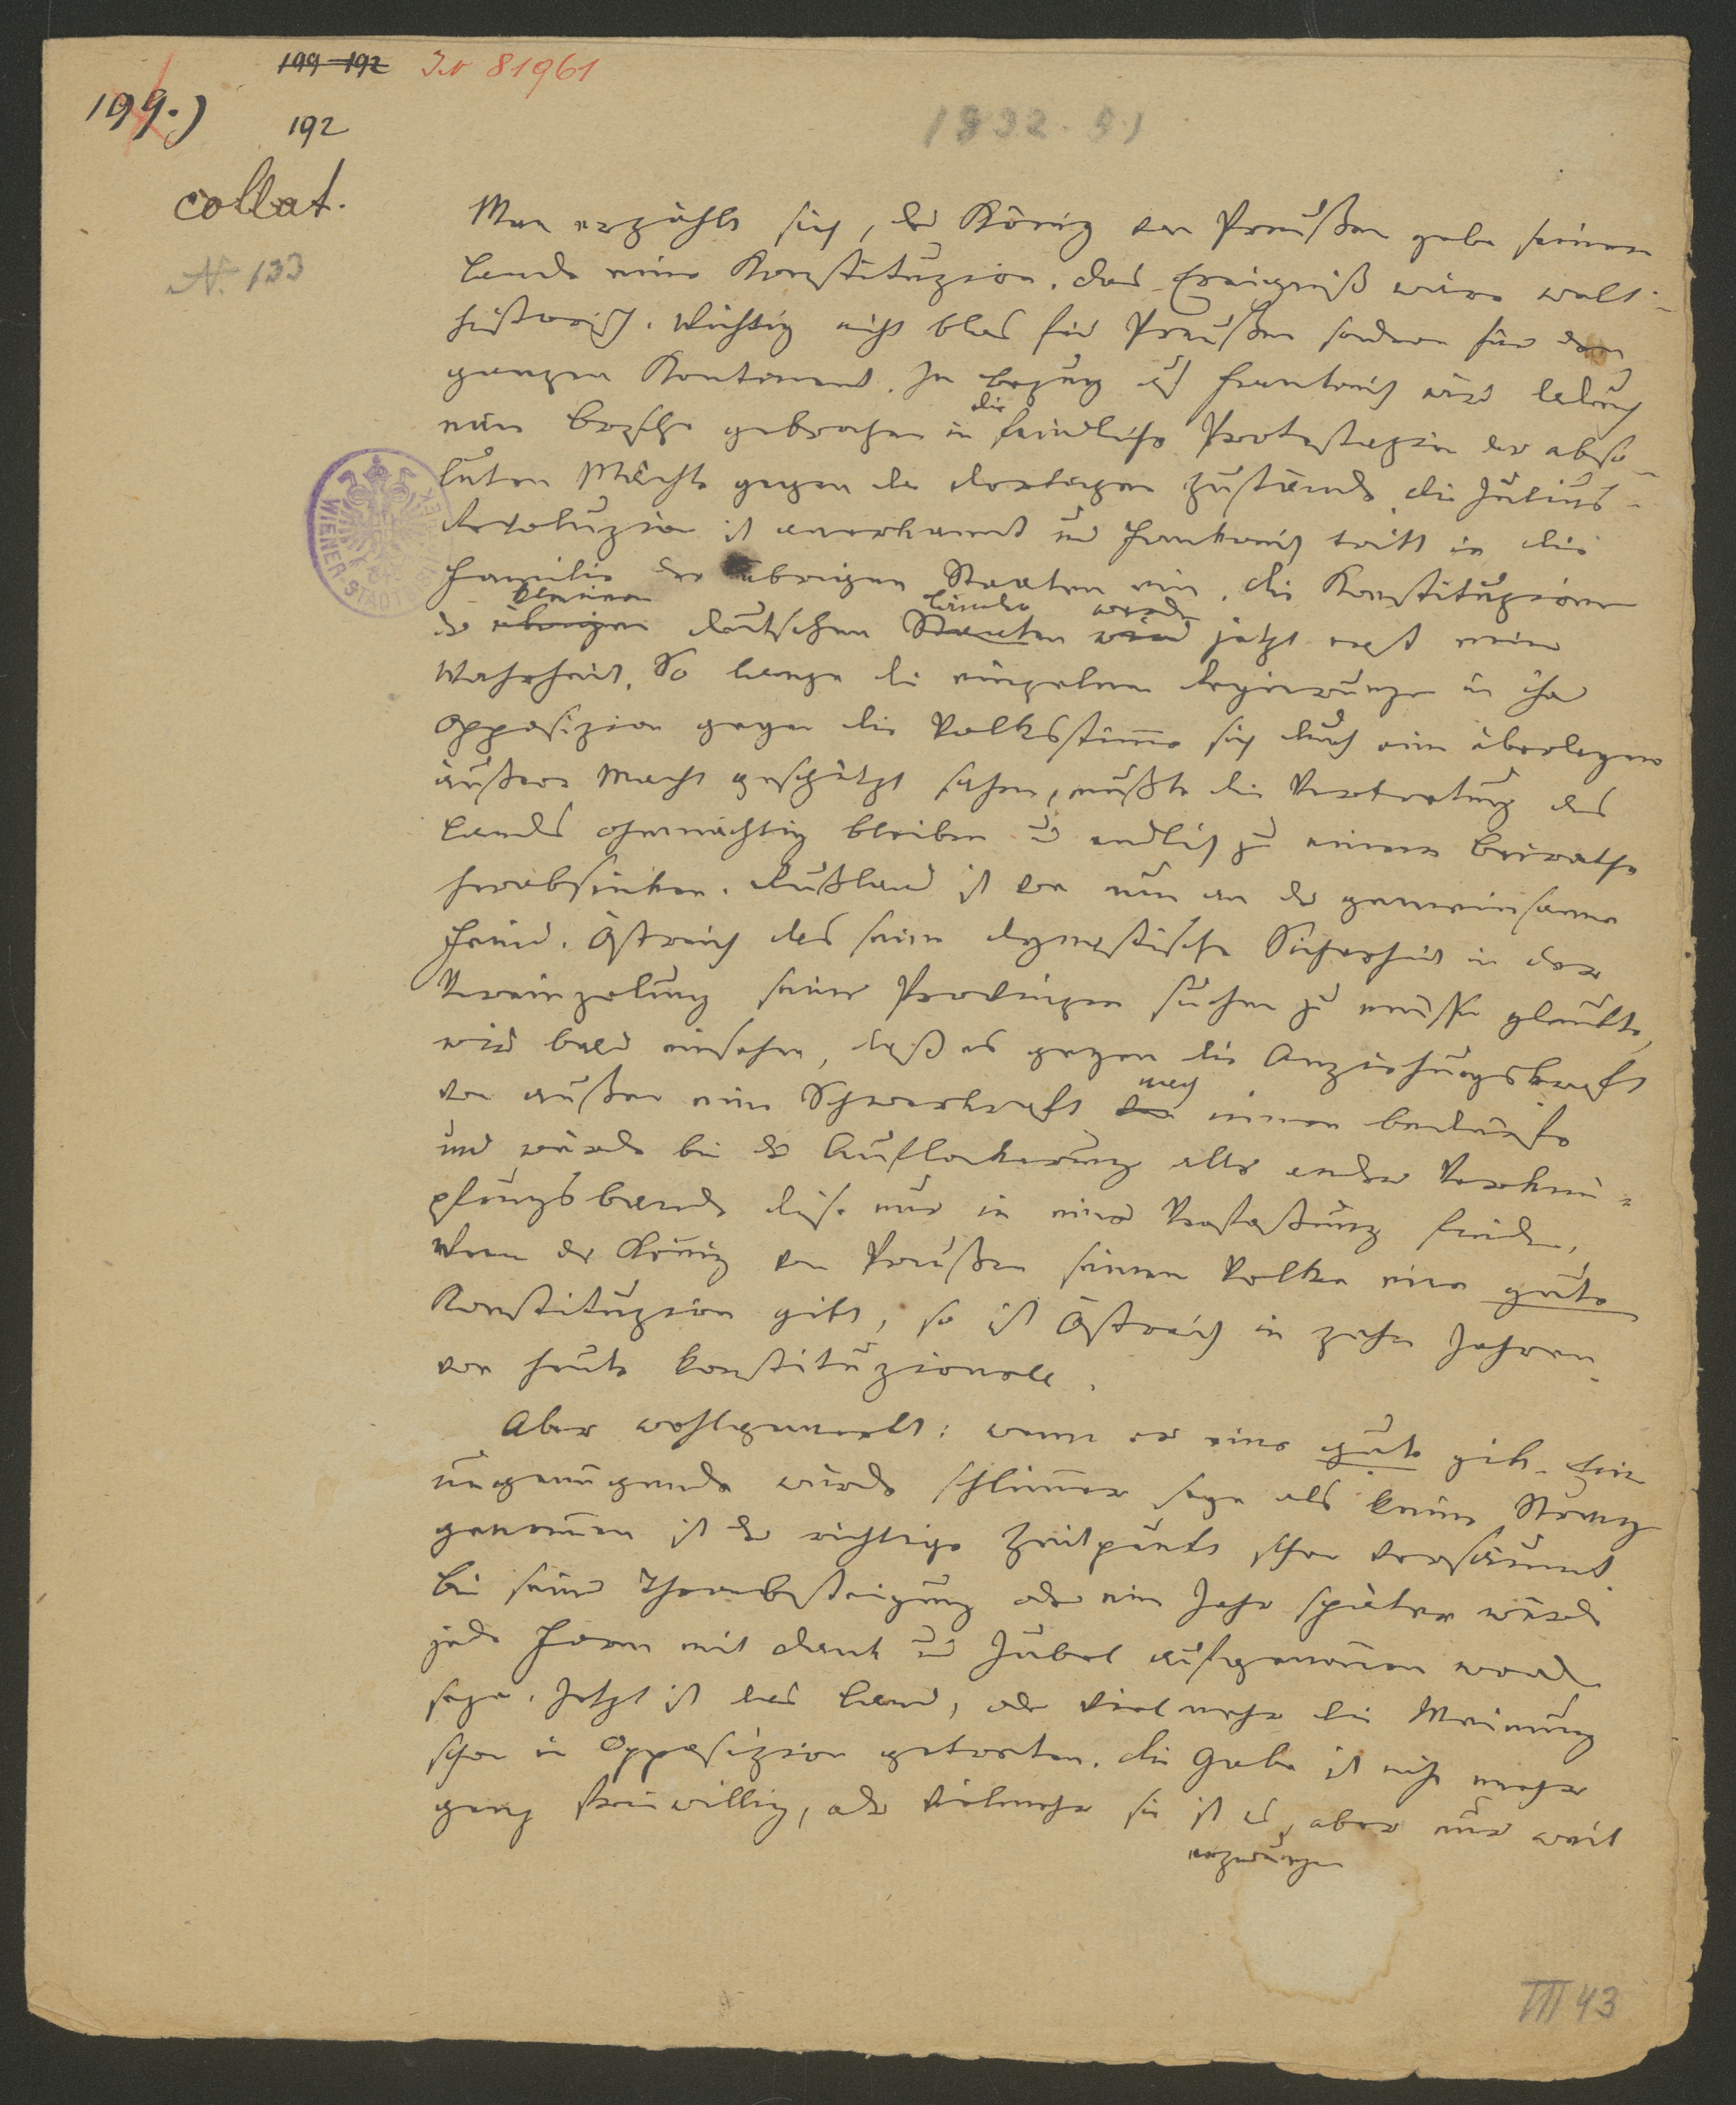 199 192 IN 81961
199.)
192
1832. 51
collat.
N. 133
Man erzählt sich, der König von Preußen gebe seinem
Lande eine Konstituzion. Das Ereigniß wäre welt-
historisch. Wichtig nicht blos für Preußen sondern für den
ganzen Kontinent. In bezug auf Frankreich wird dadurch
eine Bresche gebrochen in die feindliche Protestazion der abso-
luten Mächte gegen die dortigen Zustände, die Julius-
Revoluzion ist anerkannt und Frankreich tritt in die
Familie der übrigen Staaten ein. Die Konstituzionen
kleinern Länder werden
der übrigen deutschen Staaten wird jetzt erst eine
Wahrheit. So lange die einzelnen Regierungen in ihrer
Opposizion gegen die Volksstimme sich durch eine überlegene
äußere Macht geschützt sahen, mußte die Vertretung des
Landes ohnmächtig bleiben und endlich zu einem Beirathe
herabsinken. Rußland ist von nun an der gemeinsame
Feind. Östreich das seine dynastische Sicherheit in der
Vereinzelung seiner Provinzen suchen zu müssen glaubte,
wird bald einsehen, daß es gegen die Anziehungskraft
nach
von außen eine Schwerkraft von innen bedürfe
und würde bei der Auflockerung aller andern Verknü-
pfungsbande diese nur in einer Verfassung finden.
Wenn der König von Preußen seinem Volke eine gute
Konstituzion gibt, so ist Östreich in zehn Jahren
von heute konstituzionell.
Aber wohlgemerkt: wenn er eine gute gibt. Eine
ungenügende würde schlimmer seyn als keine. Streng
genommen ist der richtige Zeitpunkt schon versäumt.
Bei seiner Thronbesteigung oder ein Jahr später würde
jede Form mit Dank und Jubel aufgenommen worden
seyn. Jetzt ist das Land, oder vielmehr die Meinung
schon in Opposizion getreten. Die Gabe ist nicht mehr
ganz freiwillig, oder vielmehr sie ist es, aber nur weil
erzwungen
III 43
WIENER STADT